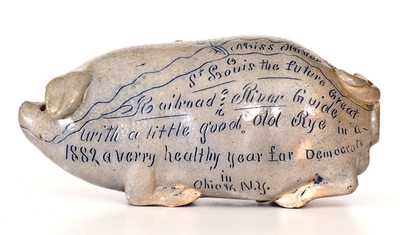 Miss
St Louis the future Great
Railroad & River Guide
with a little good Old Rye in a
1882 a verry healthy year for Democrats
in
Ohio & N.Y.